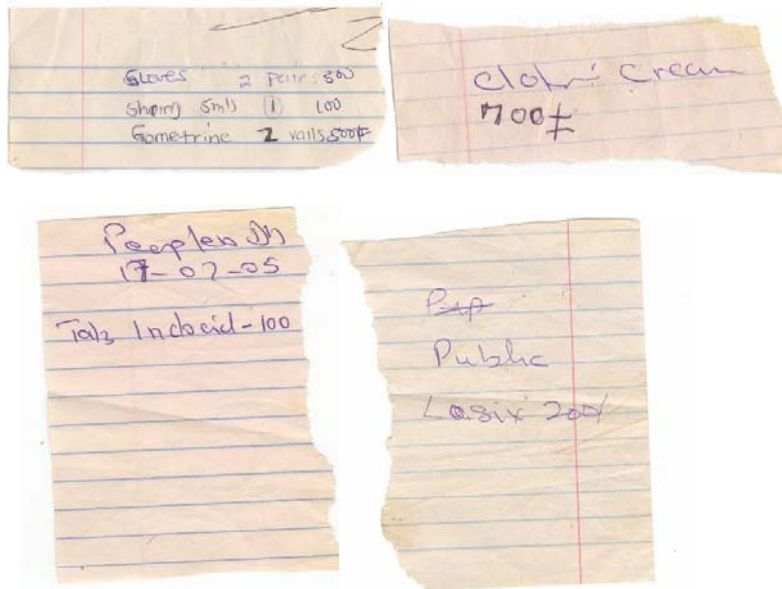 Gloves 2 pairs 300
Shring 5mls (1) 100
Gometrine 2 vails 500/=
Clotri Cream
700/=
Peoples
17-07-05
Tab Indocid-100
Pup
Public
Lasix 200/